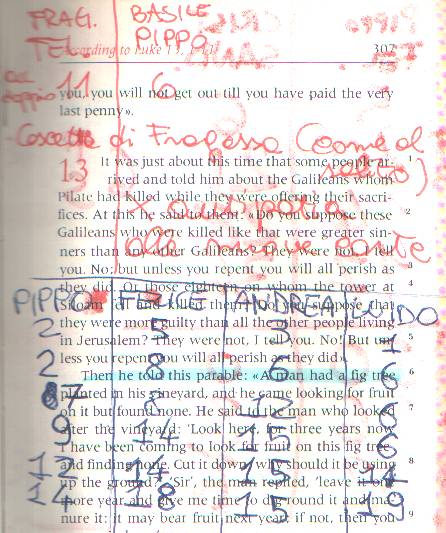 FRAG. BASILE
TEL. PIPPO
According to Luke 307
11 6
you, you will not get out till you have paid the very
last penny».
Coscetta di Fragessa (come al
solito)
13 It was just about this time that some people ar- 1
rived and told him about the Galileans whom
Pilate had killed while they were offering their sacri-
fices. At this he said to them: «Do you suppose these 2
Galileans who were killed like that were greater sin-
ners than any other Galileans? They were not, I tell 3
you. No; but unless you repent you will all perish as
they did. Or those eighteen on whom the tower at 4
PIPPO FELICE ANDREA LUIDO
Siloam fell and killed them! Do you suppose that
2 5 3 1
they were more guilty than all the other people living
in Jerusalem? They were not, I tell you. No! But un- 5
2 8 6 6
less you repent you will all perish as they did».
Then he told this parable: «A man had a fig tree 6
7 8 12 6
planted in his vineyard, and he came looking for fruit
on it but found none. He said to the man who looked 7
9 14 15 6
after the vineyard: 'Look here, for three years now
I have been coming to look for fruit on this fig tree
12 14 15 11
and finding none. Cut it down: why should it be using 8
up the ground?' 'Sir', the man replied, 'leave it one
14 18 15 19
more year and give me time to dig round it and ma-
nure it: it may bear fruit next year; if not, then you 9